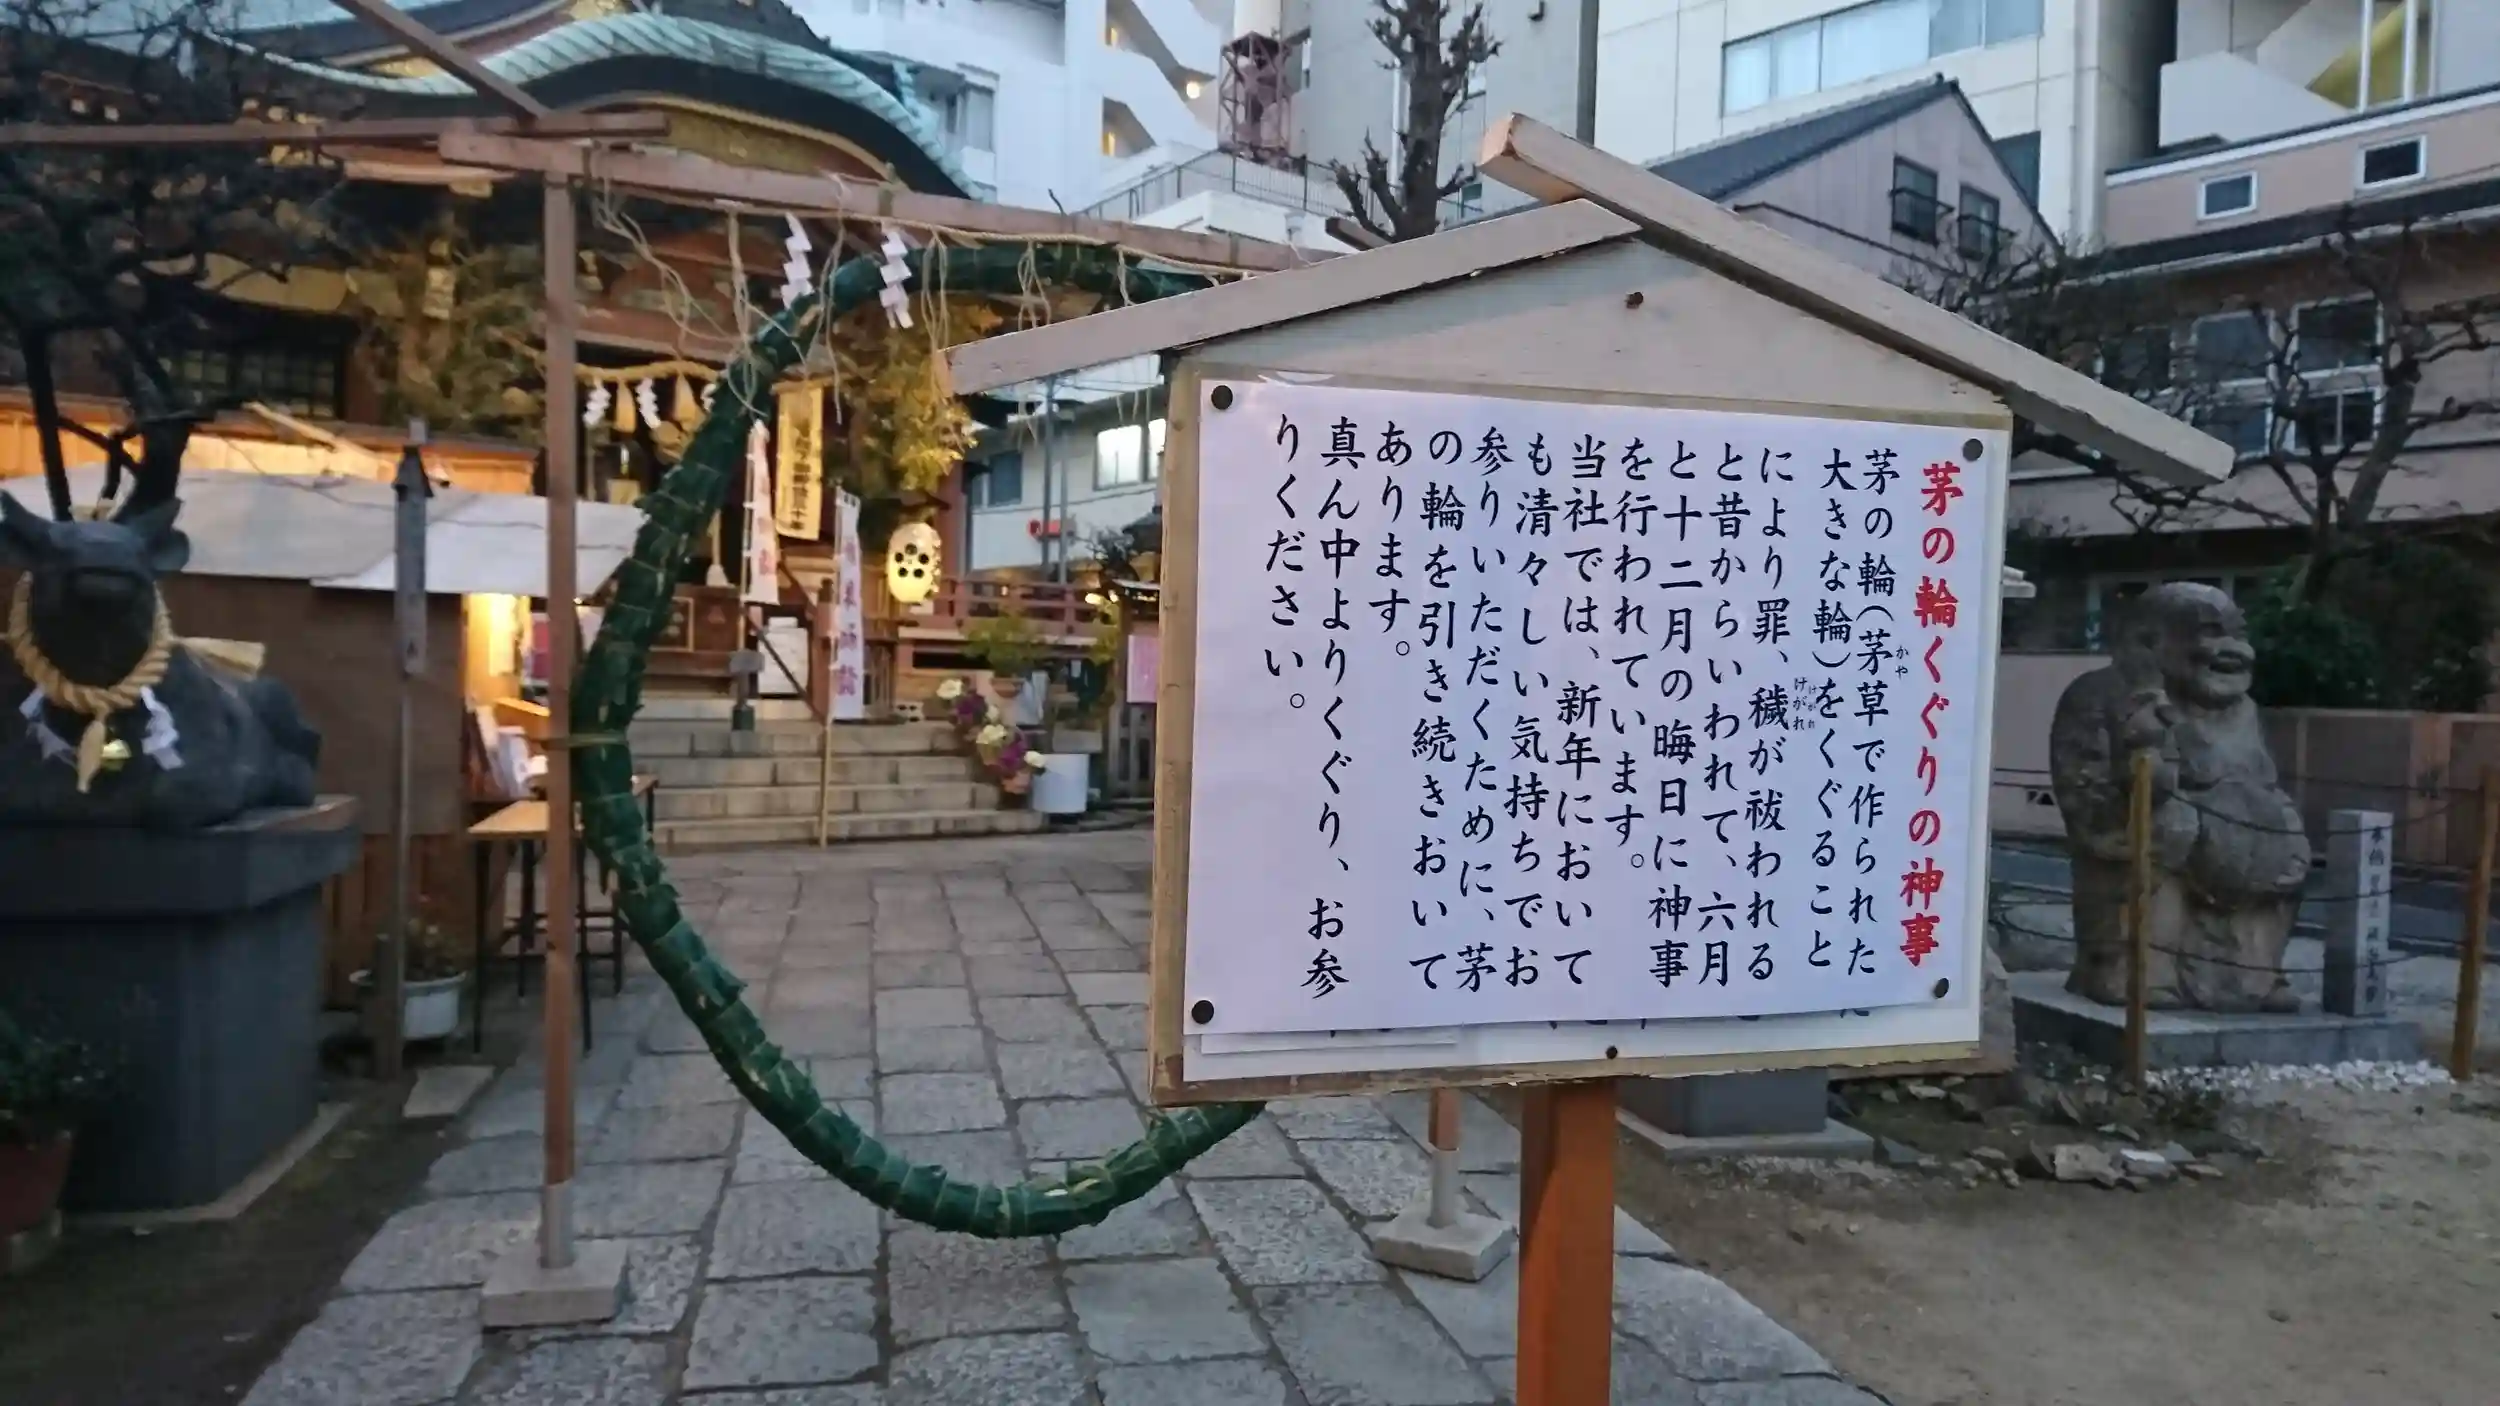 茅の輪くぐりの神事
茅の輪（茅草で作られた
かや
大きな輪）をくぐること
により罪、穢が祓われる
けがれ
と昔からいわれて、六月
と十二月の晦日に神事
を行われています。
当社では、新年において
も清々しい気持ちでお
参りいただくために、茅
の輪を引き続きおいて
あります。
真ん中よりくぐり、お参
りください。